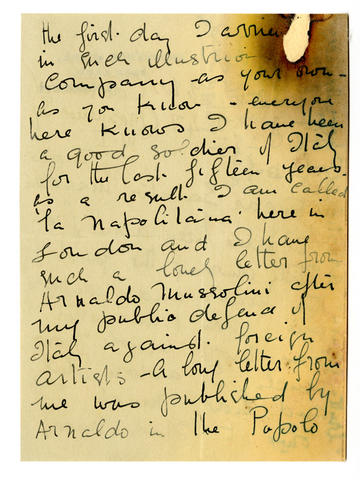 the first day I arrive
in such illustrious
Company - as your own -
as you know - everyone
here knows I have been
a good soldier of Italy
for the last fifteen years -
as a result I am called
'la Napolitaina' here in
London and I have
such a lovely letter from
Arnaldo Mussolini after
my public defence of
Italy against foreign
artists - A long letter from
me was published by
Arnaldo in the Popolo